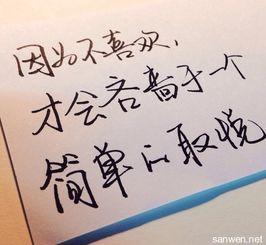 因为不喜欢,
才会吝啬于一个
简单的取悦
sanwen.net